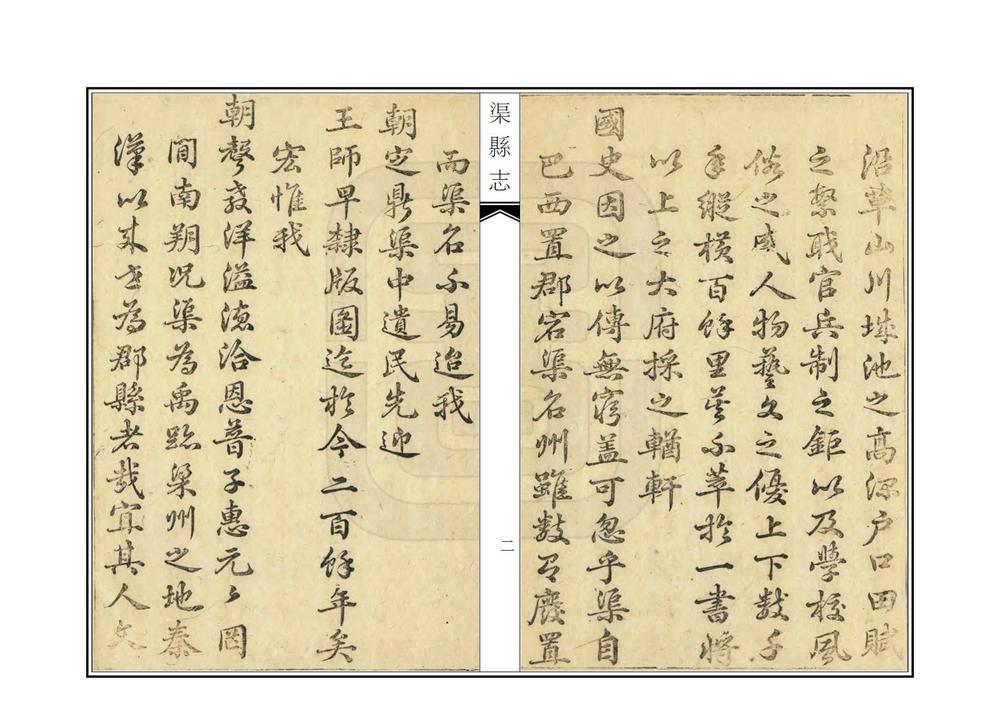 沿革山川城池之高深户口田賦
之繫職官兵制之鉅以及學校風
俗之盛人物藝文之優上下數千
年縱橫百餘里莫不萃於一書將
以上之大府採之輶軒
國史因之以傳無窮盖可忽乎渠自
巴西置郡宕渠名州雖數有廢置
渠縣志
二
而渠名不易迨我
朝定鼎渠中遺民先迎
王師早隸版圖迄於今二百餘年矣
宏惟我
朝聲教洋溢德洽恩普子惠元々罔
間南朔况渠為禹跡梁州之地秦
漢以来世為郡縣者哉宜其人文